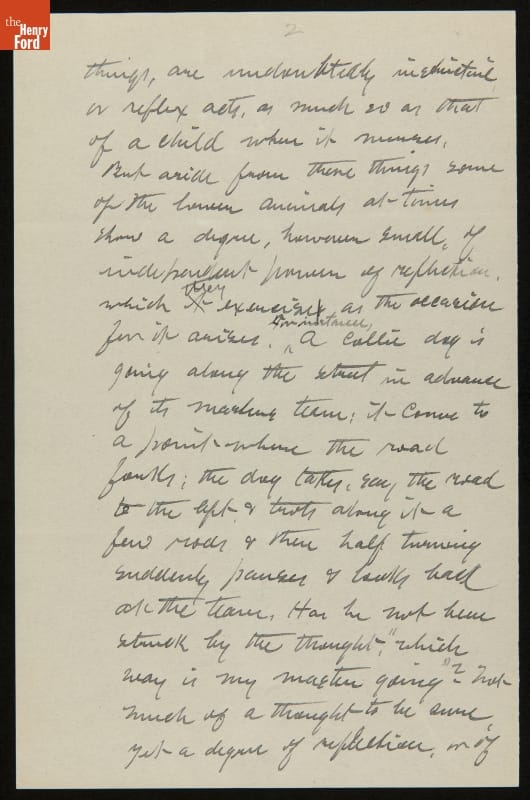 the
Henry
Ford
2
things, are undoubtedly instinctive
or reflex acts, as much so as that
of a child when it nurses.
But aside from these things some
of the lower animals at times
show a degree, however small, of
independent power of reflection,
which they exercise as the occasion
for it arises. For instance, A Collie dog is
going along the street in advance
of its masters team; it comes to
a point where the road
forks; the dog takes, say, the road
to the left & trots along it a
few rods & then half turning
suddenly pauses & looks back
at the team. Has he not been
struck by the thought, "which
way is my master going"? Not
much of a thought to be sure,
yet a degree of reflection, or of